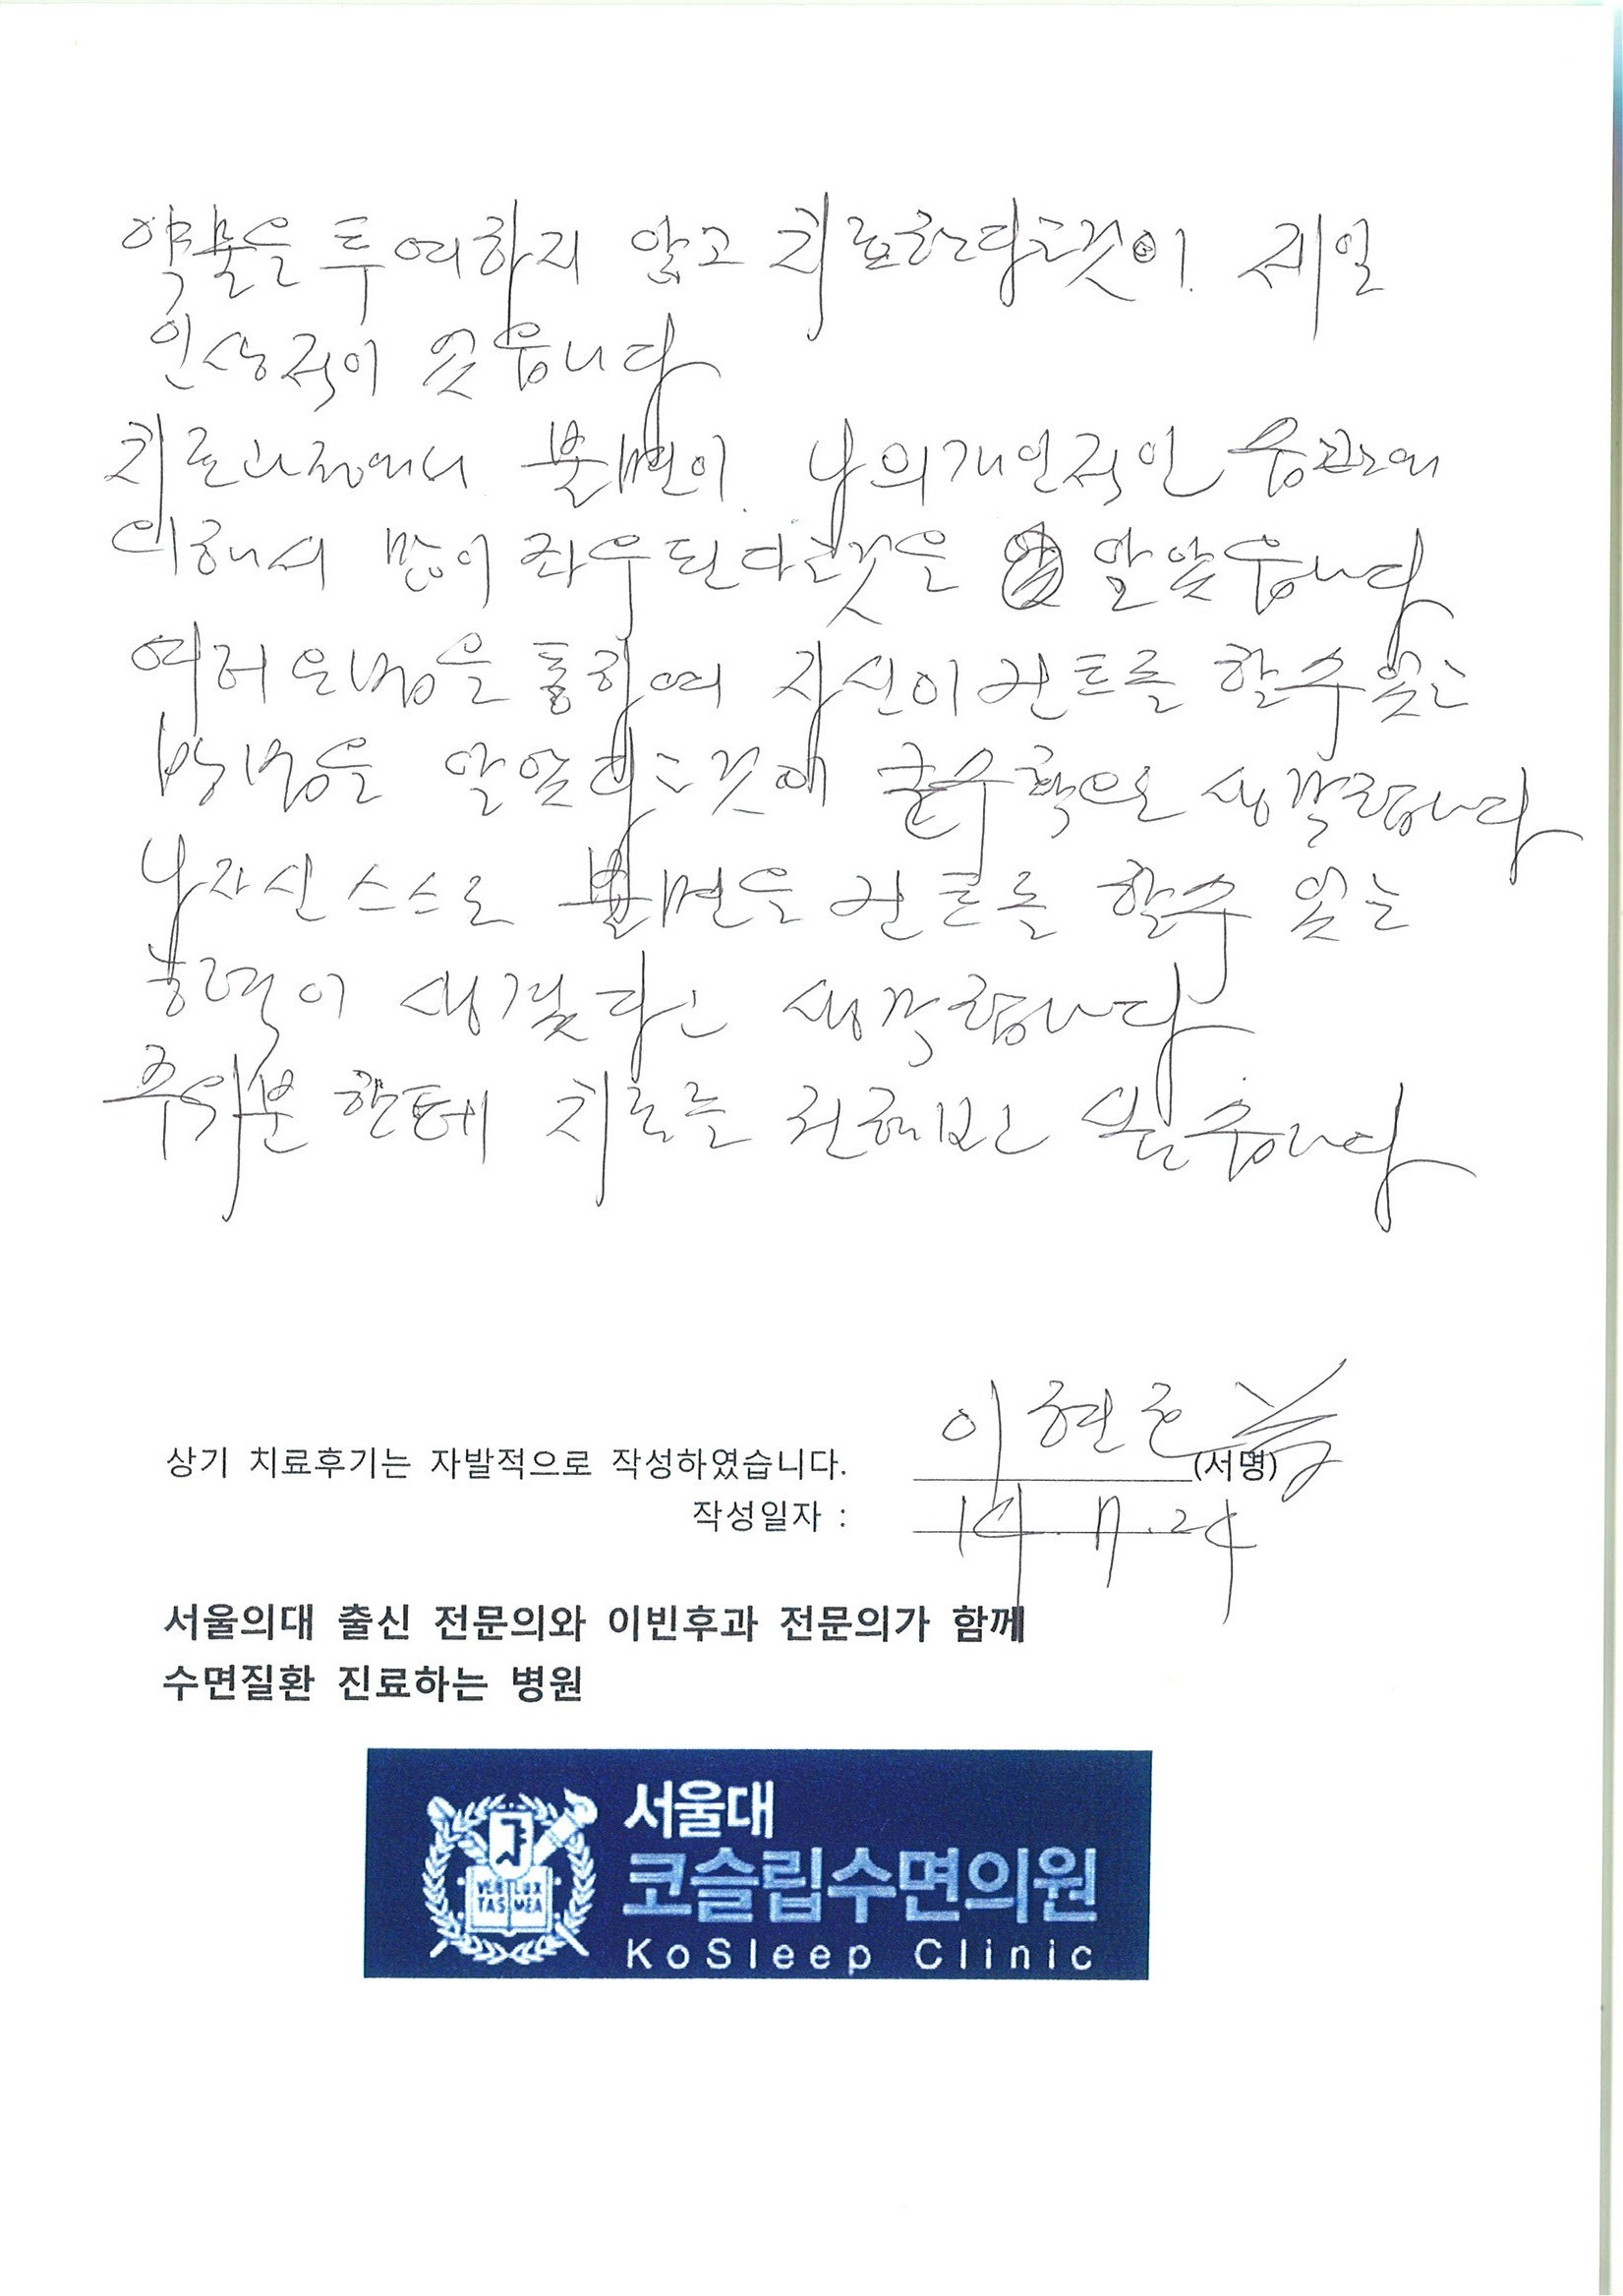 약물을 투여하지 않고 치료한다는것이 제일
인상적이 었읍니다
치료과정에서 불면이 나의개인적인 습관에
의해서 많이 좌우된다는것은 알았읍니다
여러 요법을 통하여 자신이 컨트롤 할수있는
방법을 알았다는것에 획으로 생각합니다
나자신 스스로 불면을 컨트롤 할수 있는
능력이 생겼다고 생각합니다
주위분 한테 치료를 권해보고 싶습니다
이현
상기 치료후기는 자발적으로 작성하였습니다. (서명)
작성일자 : 14.7.24
서울의대 출신 전문의와 이빈후과 전문의가 함께
수면질환 진료하는 병원
서울대
코슬립수면의원
KoSleep Clinic
VERI LUX
TAS MEA